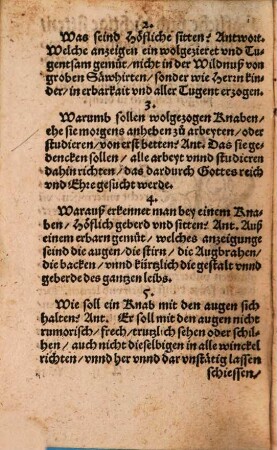 2.
Was seind Höfliche sitten? Antwort.
Welche anzeigen ein wolgezieret vnd Tu-
gentsam gemüt/ nicht in der Wildnuß von
groben Säwhirten/ sonder wie Herrn kin-
der/ in erbarkait vnd aller Tugent erzogen.
3.
Warumb sollen wolgezogen Knaben/
ehe sie morgens anheben zů arbeyten/ oder
studieren/ von erst betten? Ant. Das sie ge-
dencken sollen/ alle arbeyt vnnd studieren
dahin richten/ das dardurch Gottes reich
vnd Ehre gesucht werde.
4.
Warauß erkennet man bey einem Kna-
ben/ Höflich geberd vnd sitten? Ant. Auß
einem erbarn gemüt/ welches anzeigunge
seind die augen/ die stirn/ die Augbrahen/
die backen/ vnnd kürtzlich die gestalt vnnd
geberde des gantzen leibs.
5.
Wie soll ein Knab mit den augen sich
halten? Ant. Er soll mit den augen nicht
rumorisch/ frech/ trutzlich sehen oder schil-
hen/ auch nicht dieselbigen in alle winckel
richten/ vnnd her vnnd dar vnstätig lassen
schiessen/